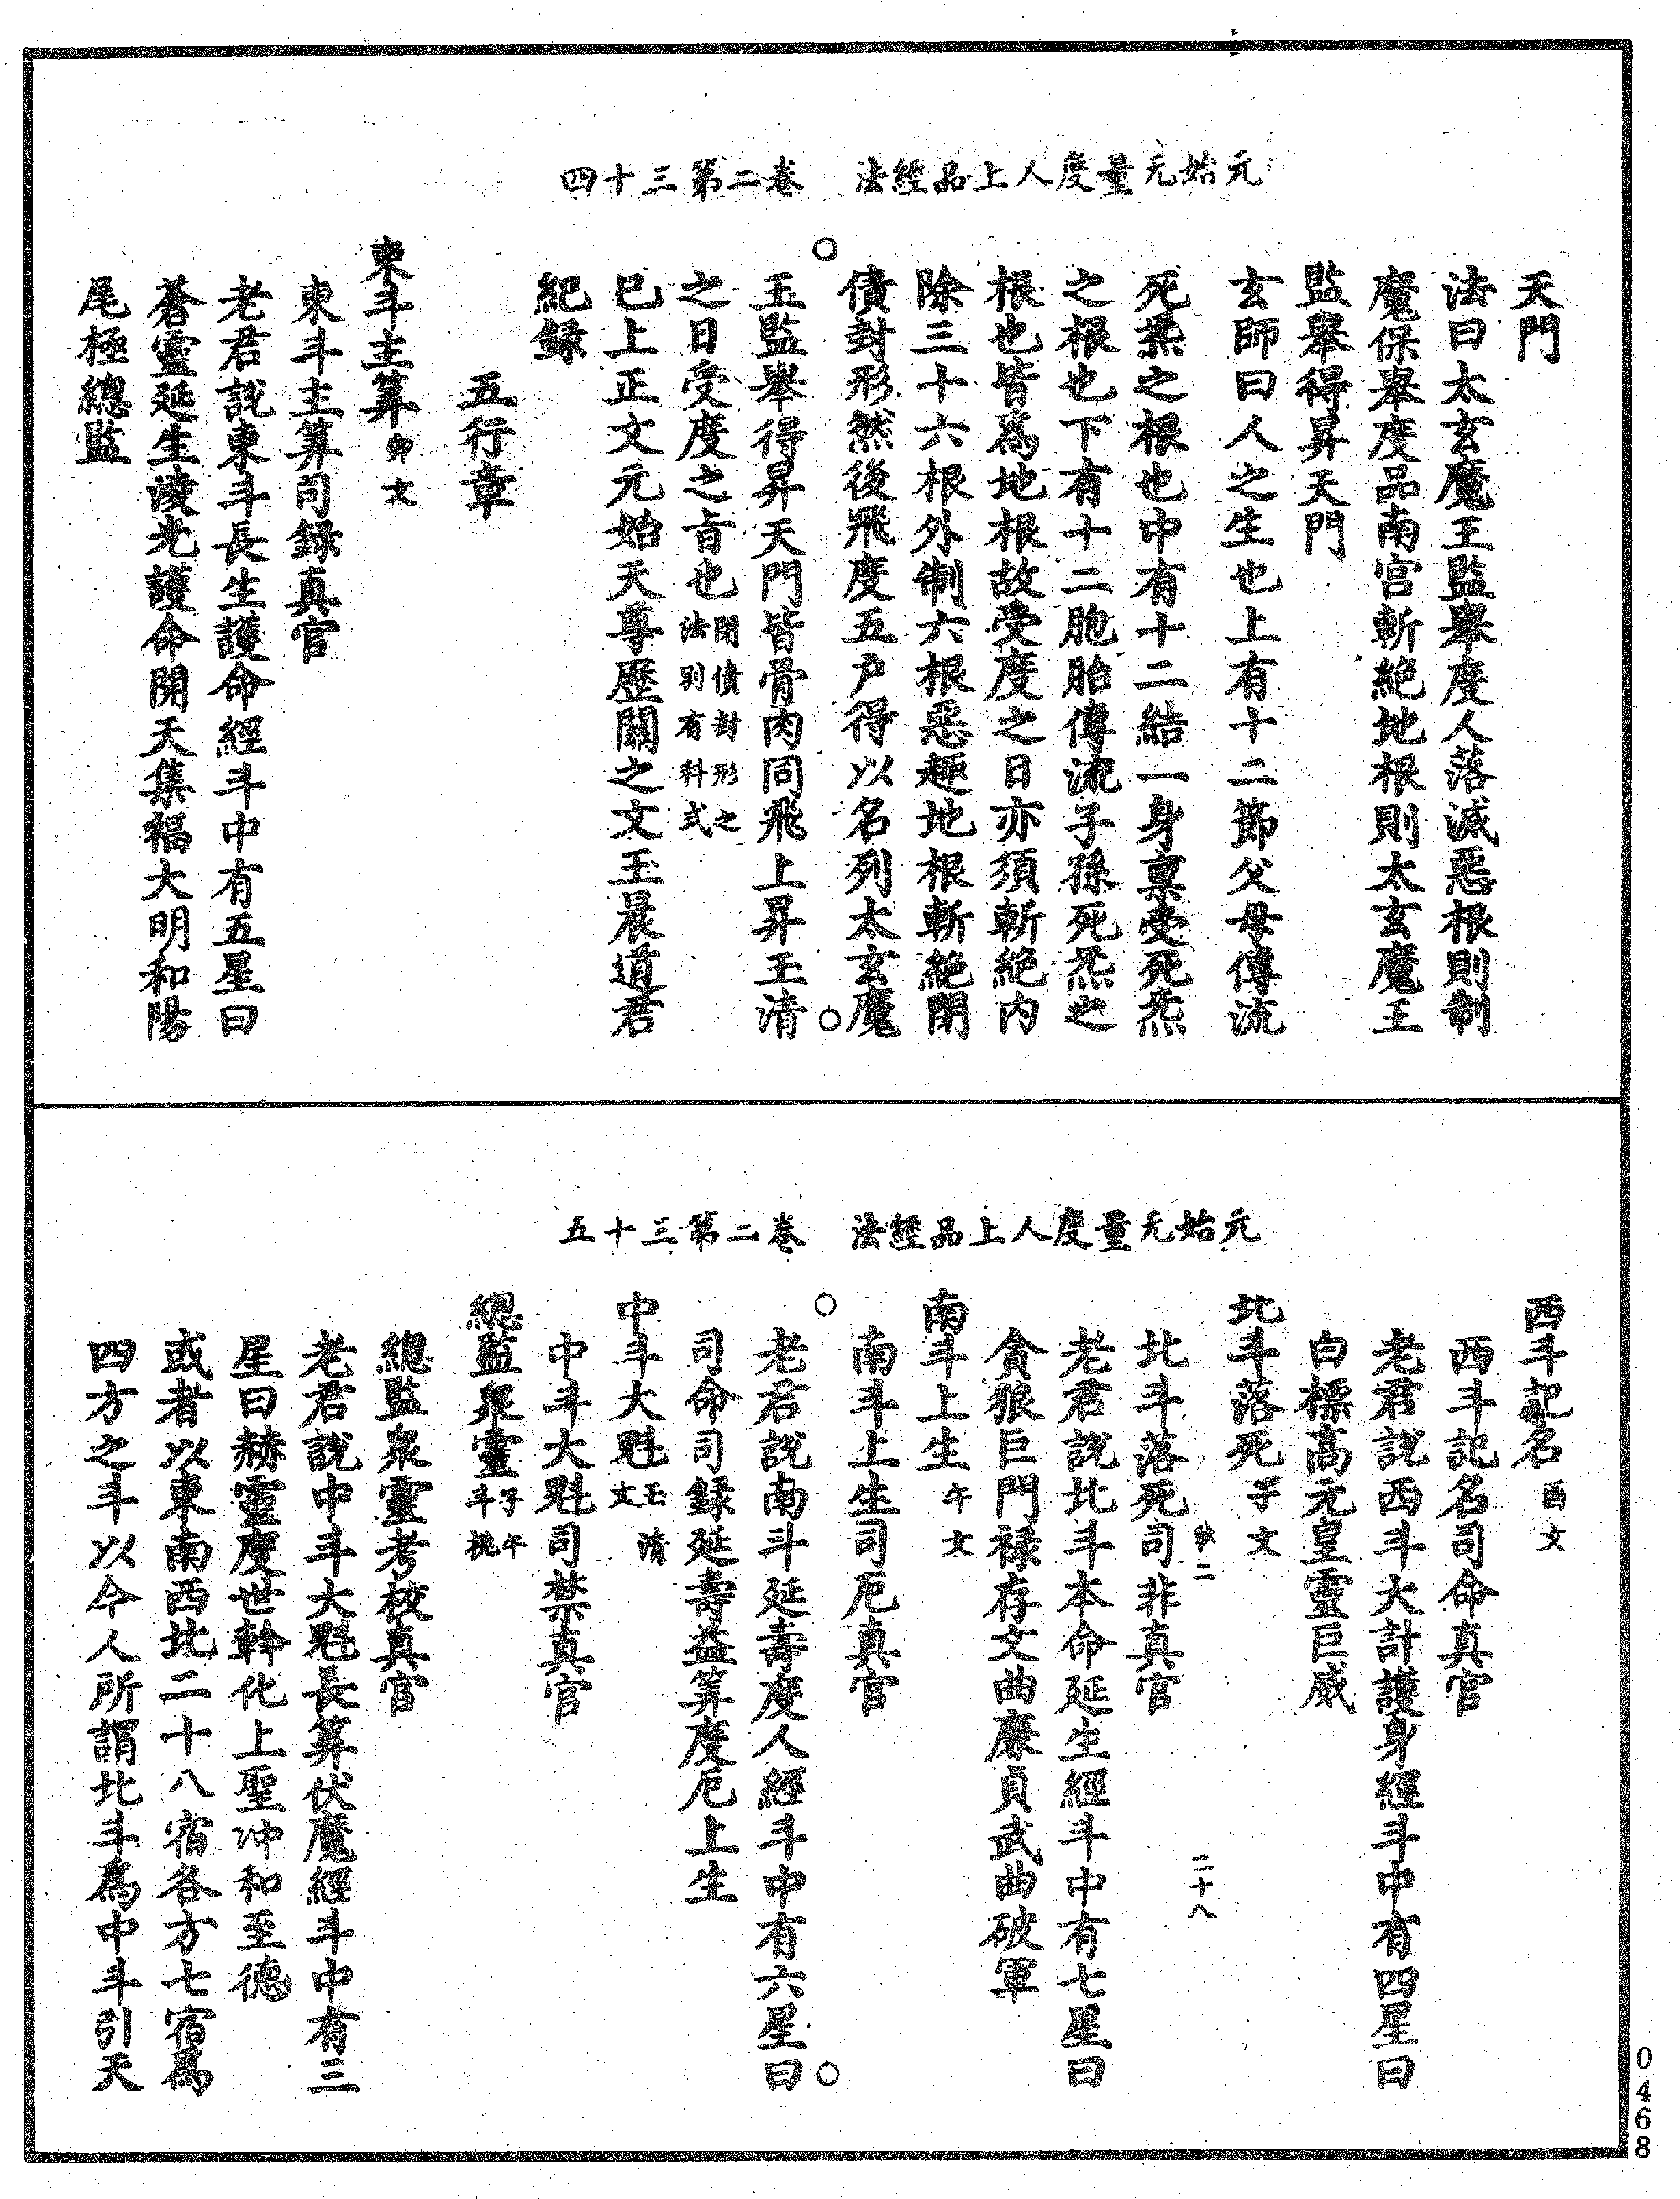 元始无量度人上品經法　卷二第三十四
天門
法曰太玄魔王監舉度人落滅惡根則制
魔保舉度品南宮斬絕地根則太玄魔王
監舉得昇天門
玄師曰人之生也上有十二節父母傳流
死炁之根也中有十二結一身稟受死炁
之根也下有十二胞胎傳流子孫死炁之
根也皆爲地根故受度之日亦須斬絕內
除三十六根外制六根惡趣地根斬絕閉
債封形然後飛度五戶得以名列太玄魔
玉監舉得昇天門皆骨肉同飛上昇玉清
之日受度之旨也閉債封形之法別有科式
已上正文元始天尊歷關之文玉晨道君
紀録
五行章
東斗主筭卯文
東斗主筭司録真官
老君說東斗長生護命經斗中有五星曰
蒼靈延生淩光護命開天集福大明和陽
尾極總監
元始无量度人上品經法　卷二第三十五
西斗記名酉文
西斗記名司命真官
老君說西斗大計護身經斗中有四星曰
白標高元皇靈巨威
北斗落死子文
二十八
北斗落死司非真官
老君說北斗本命延生經斗中有七星曰
貪狼巨門祿存文曲廉貞武曲破軍
南斗上生午文
南斗上生司厄真官
老君說南斗延壽度人經斗中有六星曰
司命司録延壽益筭度厄上生
中斗大魁玉清文
中斗大魁司禁真官
總監衆靈子午斗機
總監衆靈考校真官
老君說中斗大魁長筭伏魔經斗中有三
星曰赫靈度世幹化上聖沖和至德
或者以東南西北二十八宿各方七宿爲
四方之斗以今人所謂北斗爲中斗引天
0468